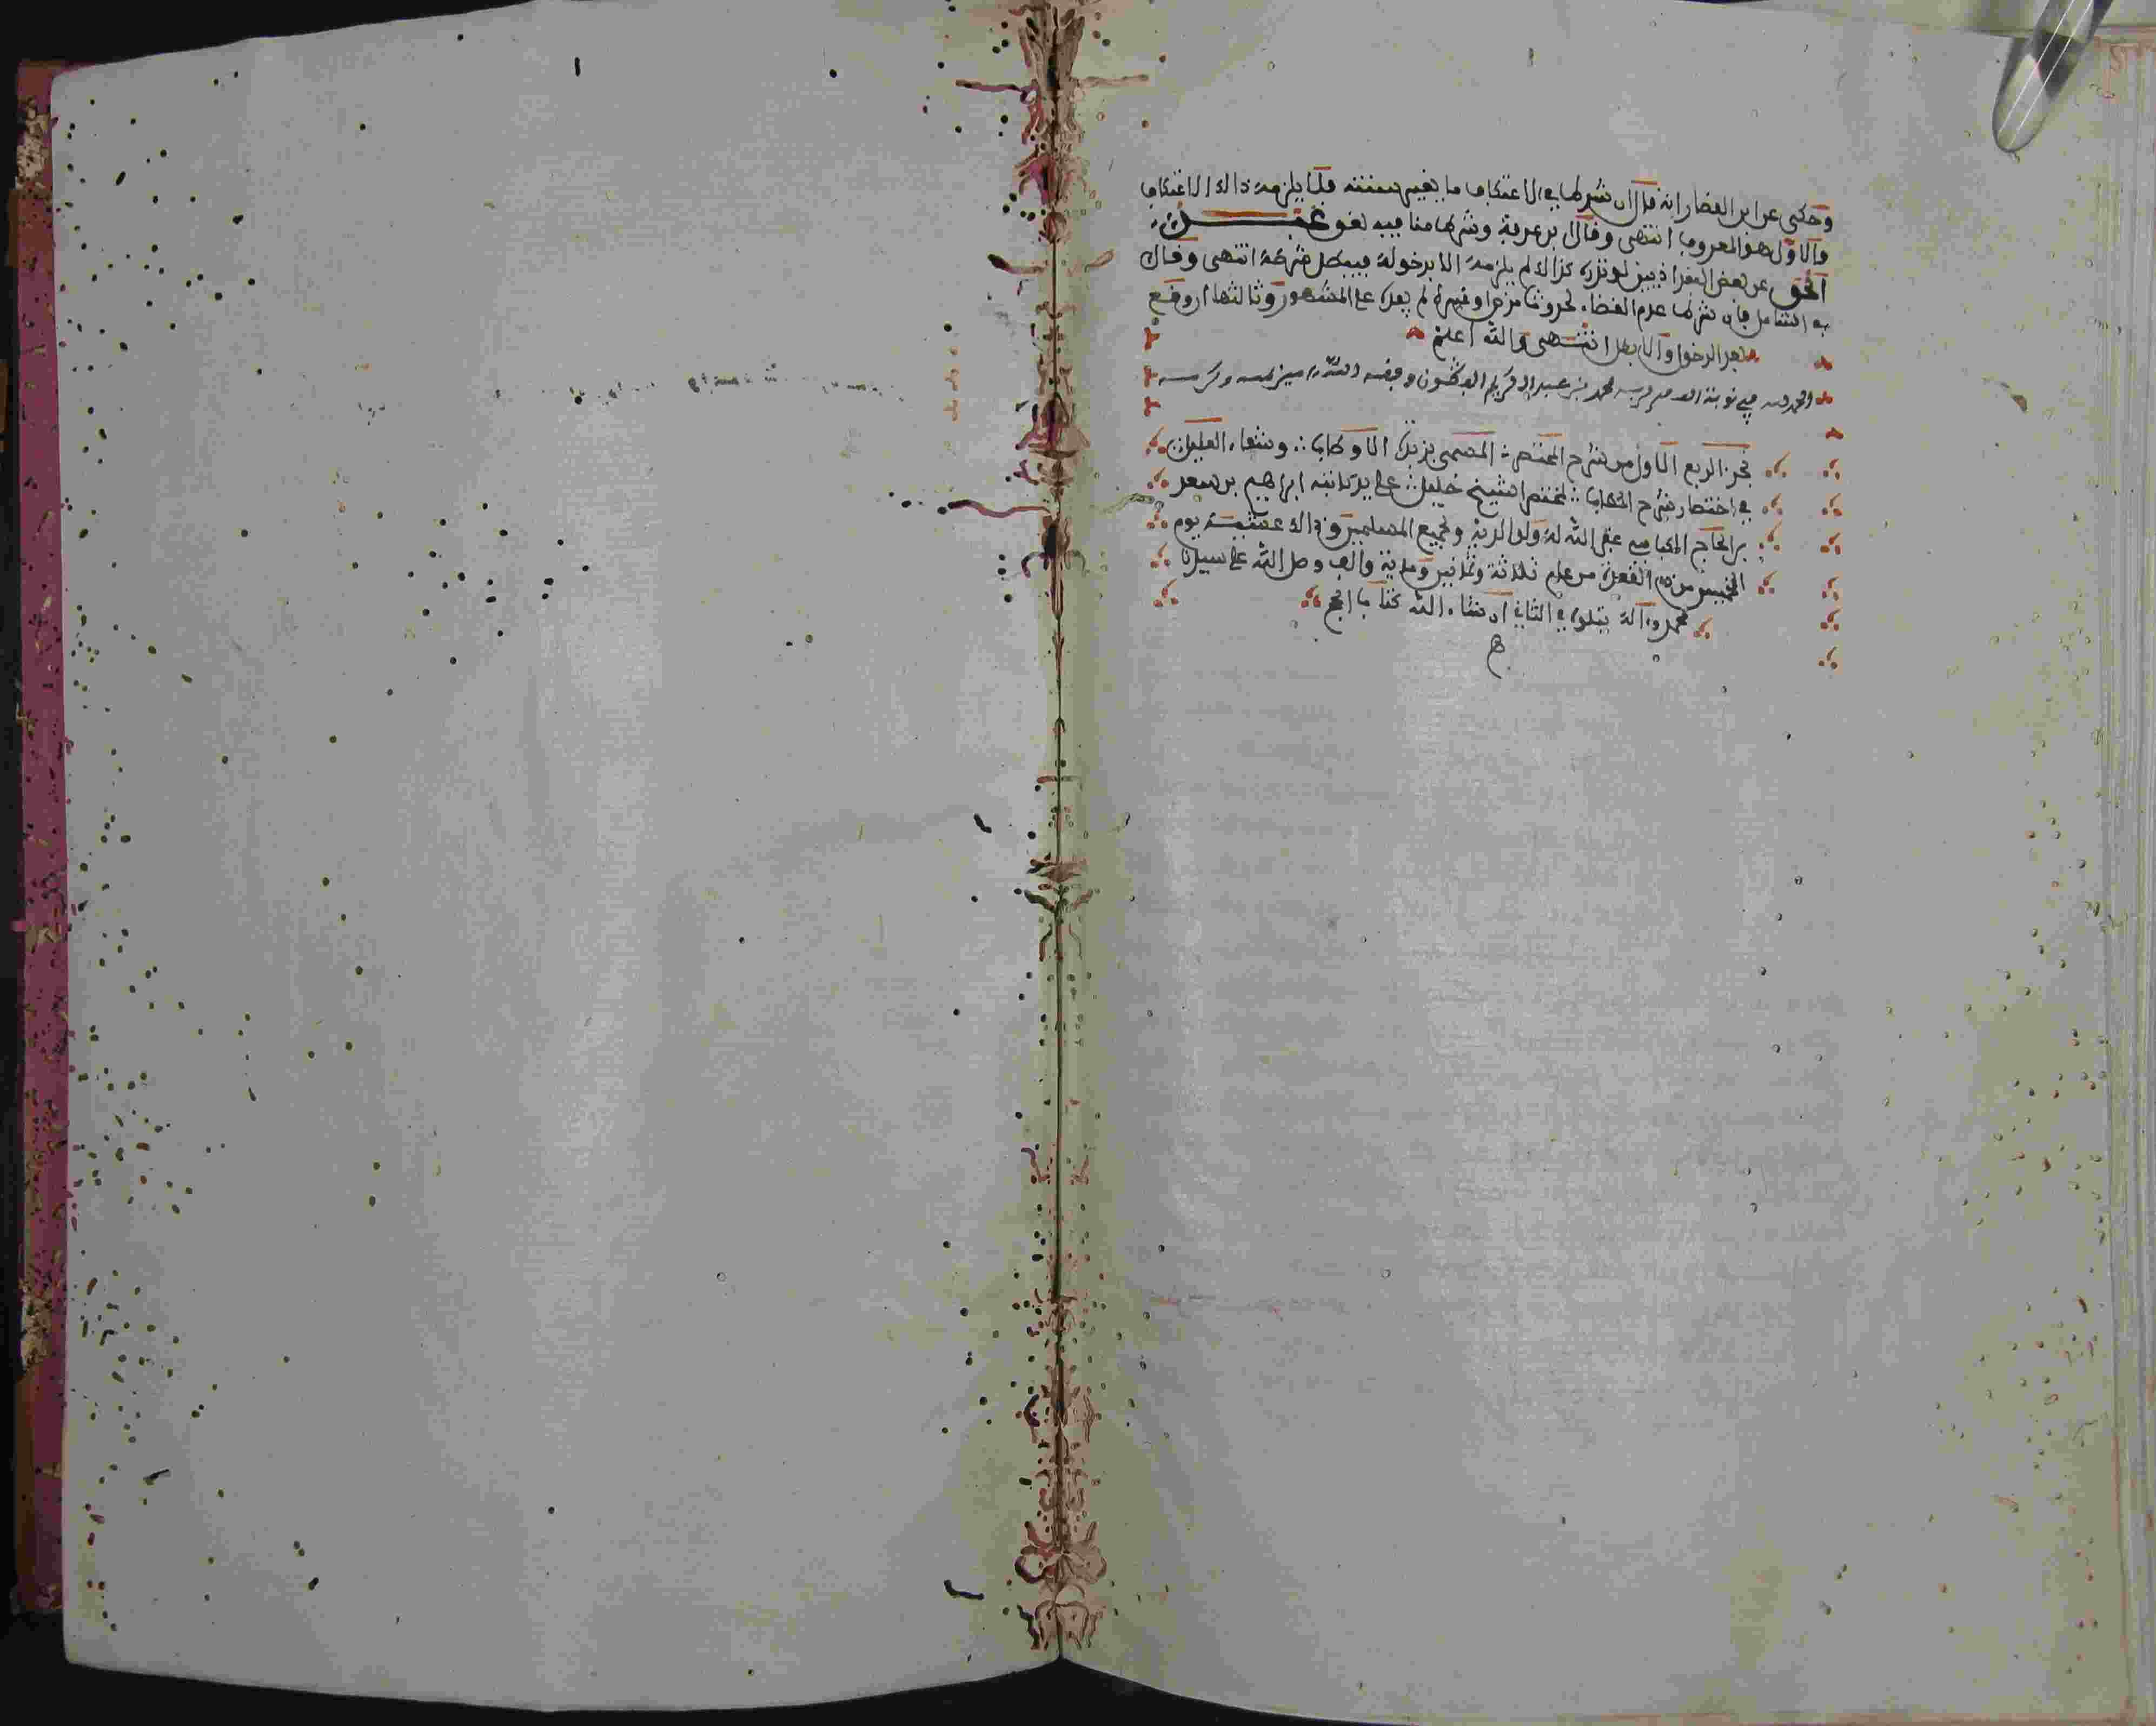 وحكى عن ابن القصار انه قال ان شرط في الاعتكاف ما يغير سنته فلا يلزمه ذالك الاعتكاف
والاول هو المعروف انتهى وقال ابن عرفة وشرط منافيه لغو عبد
الحق عن بعض البغداذيين لو نذره كذالك لم يلزمه الا بدخوله فيبطل شرطه انتهى وقال
في الشامل فان شرط عدم القضاء لحدوث مرض او غيره لم يفده على المشهور وثالثها ان وقع
بعد الدخول والا بطل انتهى والله اعلم
الحمد لله في نوبة محمد بن عبد الكريم الفكون وفقه الله ءامين
نجز الربع الاول من شرح المختصر المسمى بزبدة الاوطاب وشفاء الغليل
في اختصار شرح الحطاب لمختصر الشيخ خليل على يد كاتبه ابراهيم بن سعد
بن الحاج غفر الله له ولوالديه ولجميع المسلمين وذالك عشية يوم
الخميس من ذي القعدة من عام ثلاثة وثمانين ومائة والف وصل الله على سيدنا
محمد وءاله يتلوه في الثاني ان شاء الله كتاب الحج